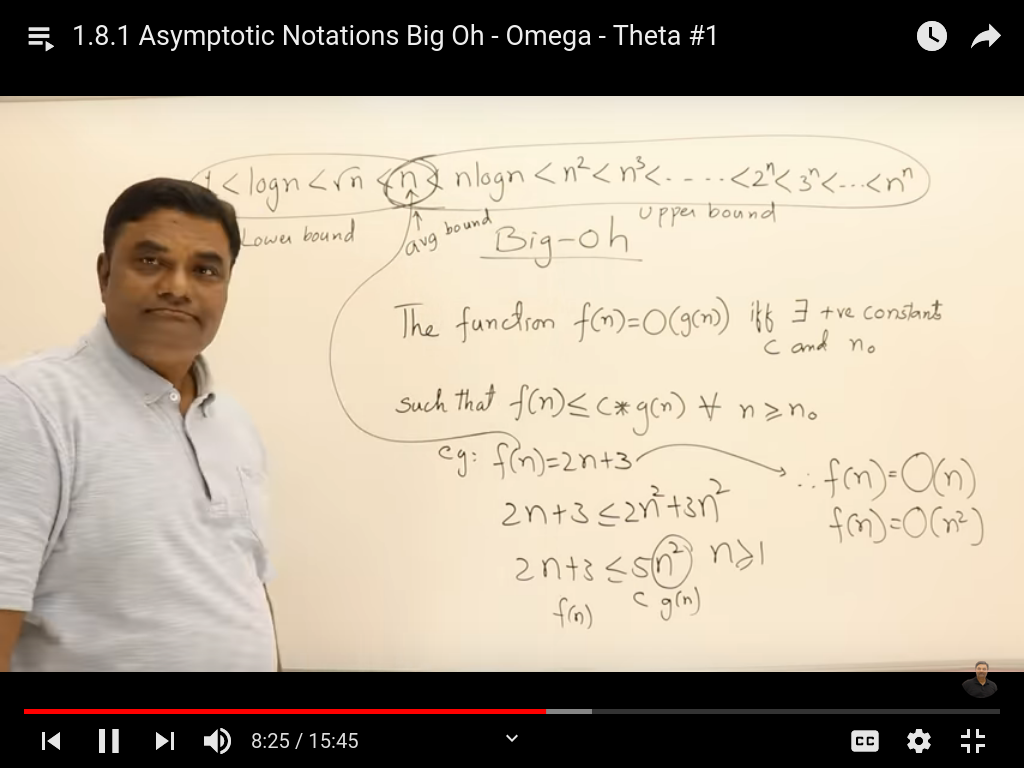 1.8.1 Asymptotic Notations Big Oh - Omega - Theta #1
1 < logn < √n < n < nlogn < n² < n³ < - - . . . < 2ⁿ < 3ⁿ < ... < nⁿ
Lower bound avg bound Upper bound
Big-Oh
The function f(n)=O(g(n)) iff ∃ +ve constants
c and n₀
such that f(n) ≤ c * g(n) ∀ n ≥ n₀
eg: f(n)=2n+3
∴ f(n)=O(n)
2n+3 ≤ 2n²+3n²
f(n)=O(n²)
2n+3 ≤ 5n² n≥1
f(n) c g(n)
8:25 / 15:45
CC